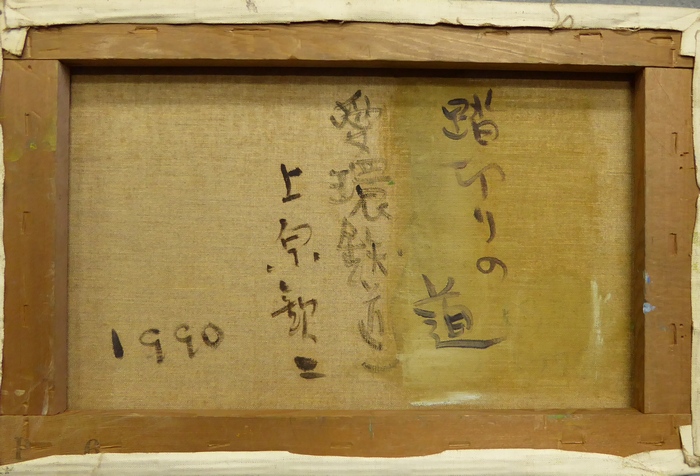 踏切りの道
愛環鉄道)
上原欽二
1990